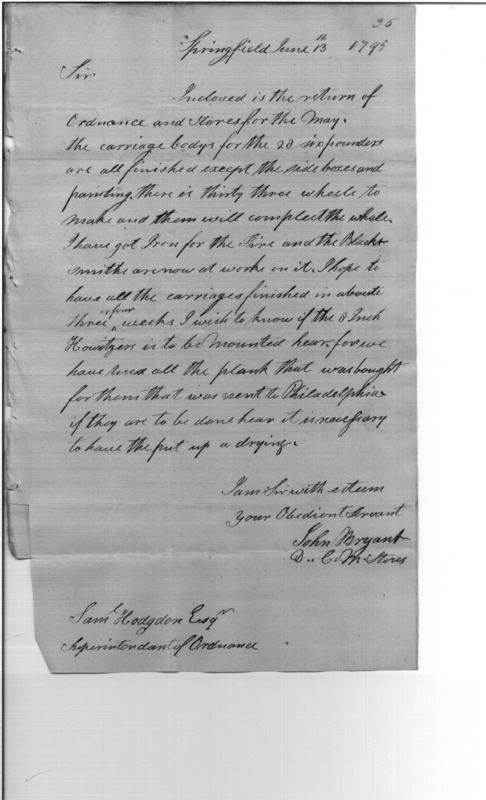 35
Springfield June 13th 1795
Sir
Inclosed is the return of
Ordnance and Stores for the May.
the carriage bodys for the 28 six pounders
are all finished except the side boxes and
painting, there is thirty three wheels to
make and them will compleet the whole.
I have got Iron for the Tire and the Black
smiths are now at works on it. I hope to
have all the carriages finished in aboute
three or four weeks I wish to know if the 8 Inch
Howitzers is to be Mounted hear. for we
have used all the plank that was bought
for them that was sent to Philadelphia
if they are to be done hear it is necessary
to have the put up a drying.
I am Sir with esteem
your Obedient Servant
John Bryant
D.. C. M Stores
Saml Hodgdon Esqr
Superintendant of Ordnance